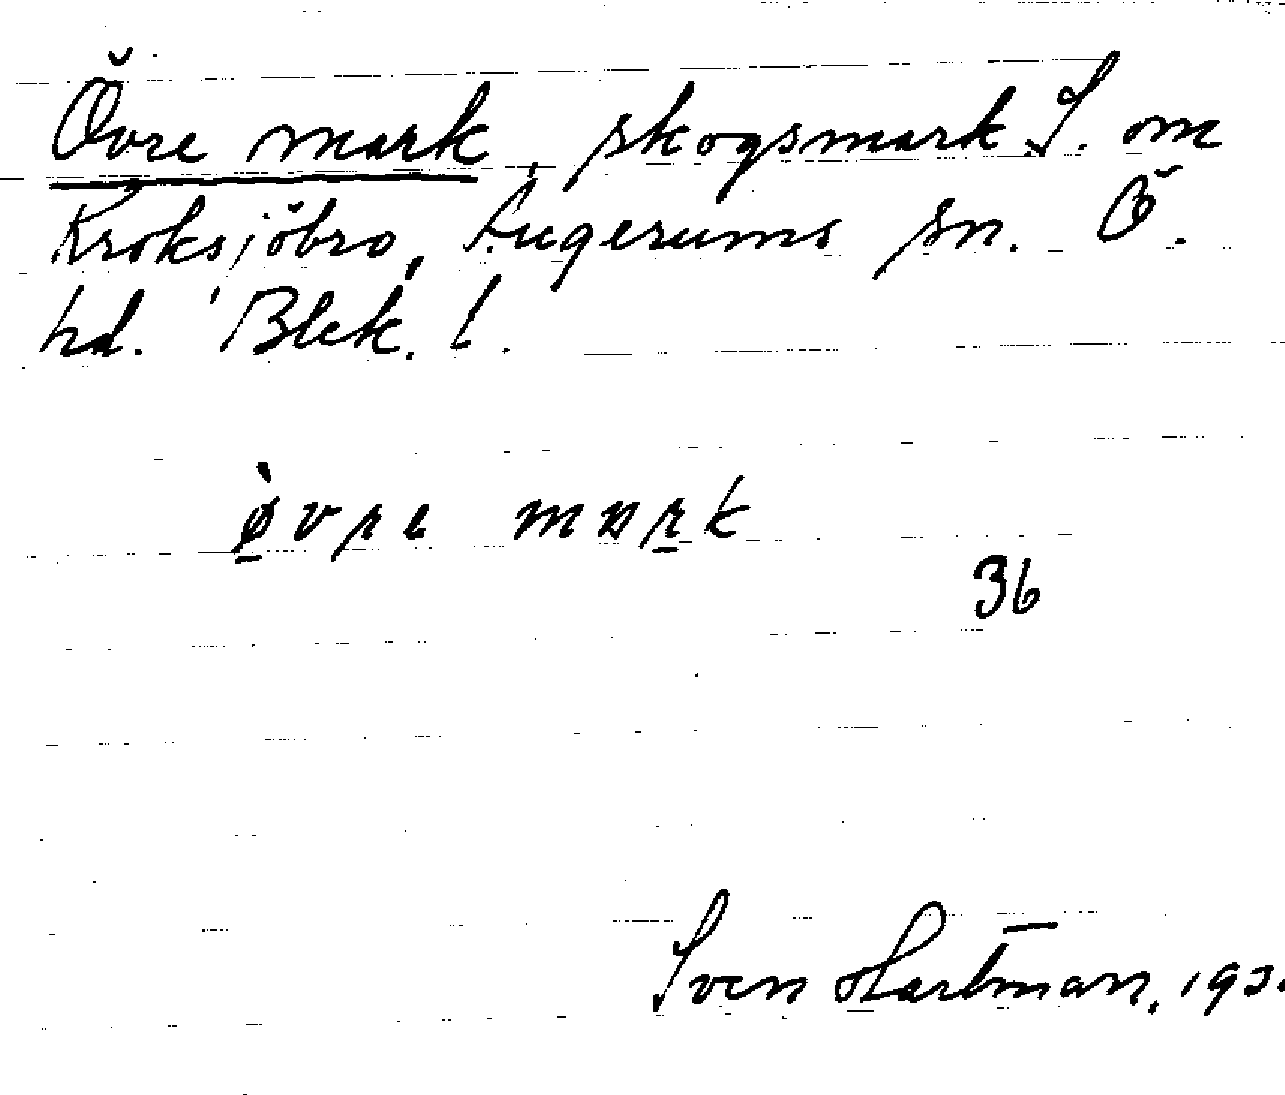 Övre mark, skogsmark S. om
Kroksjöbro, Augerums sn. Ö.
hd. Blek. l.
øvre mark
36
Sven Hartman, 193